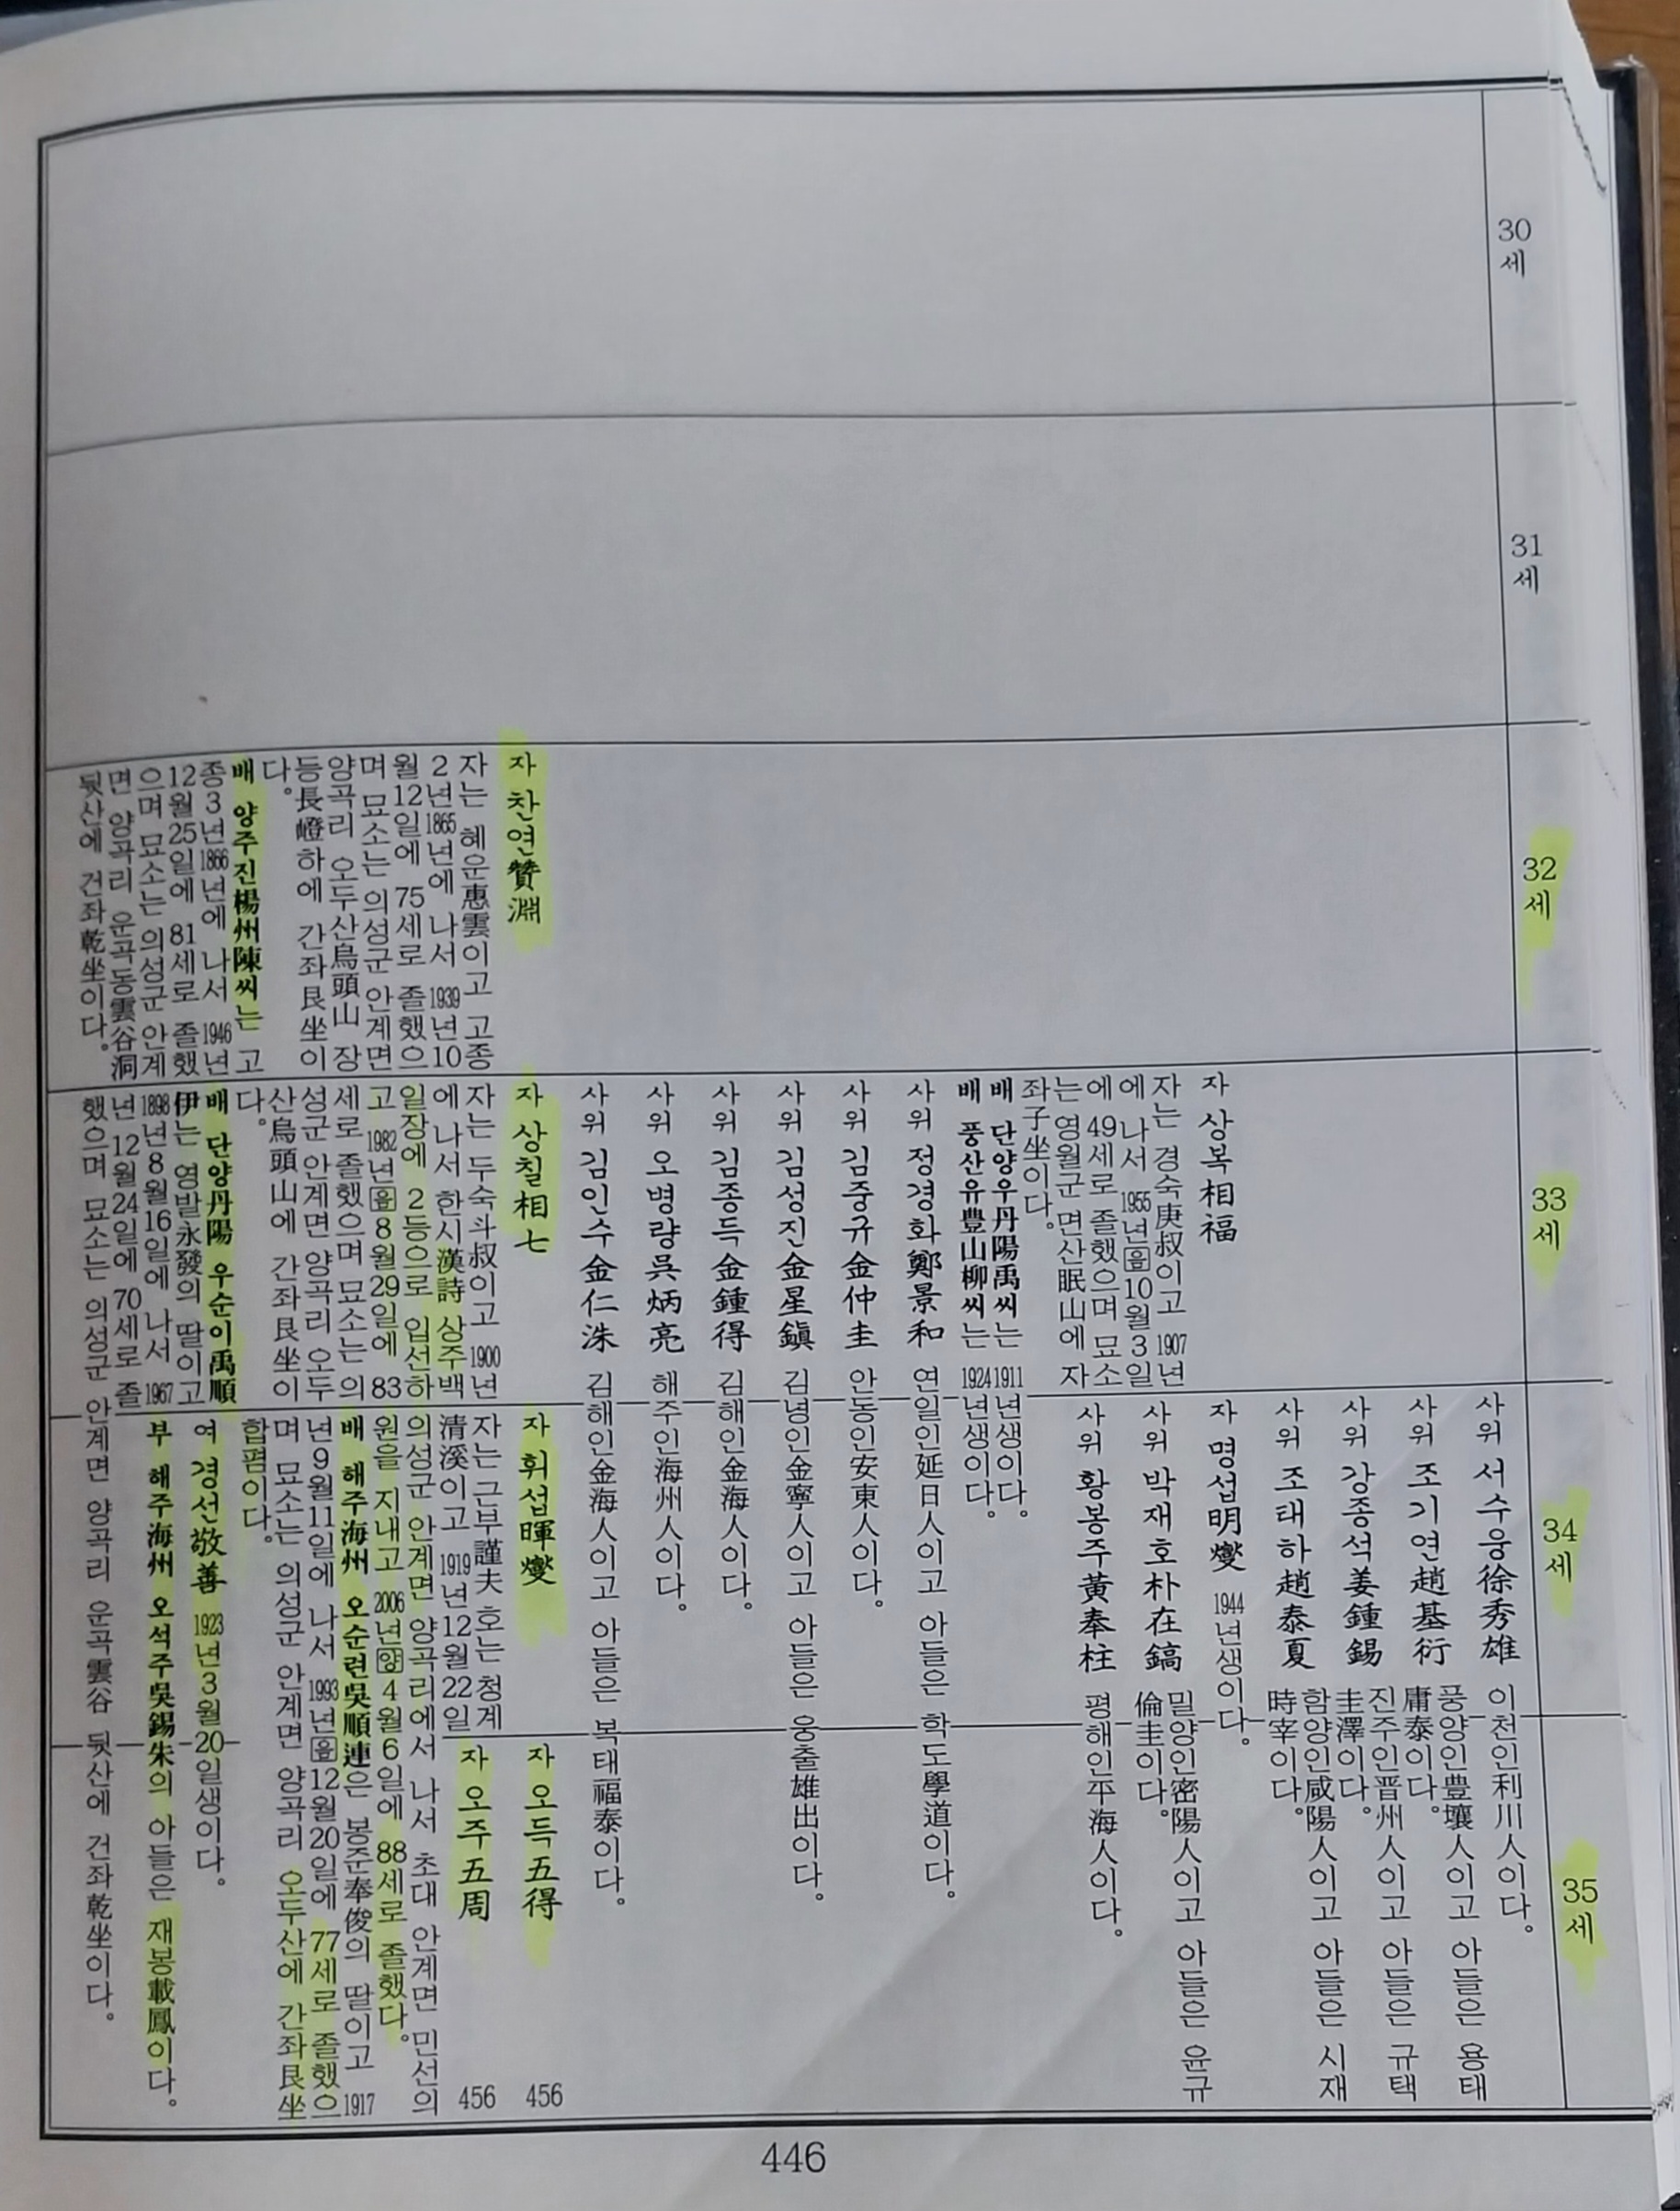 30세
31세
32세
33세
34세
35세
사위 서수웅徐秀雄 이천인利川人이다.
사위 조기연趙基衍 풍양인豊壤人이고 아들은 용태
庸泰이다.
사위 강종석姜鍾錫 진주인晋州人이고 아들은 규택
圭澤이다.
사위 조태하趙泰夏 함양인咸陽人이고 아들은 시재
時宰이다.
자 명섭明燮 1944년생이다.
사위 박재호朴在鎬 밀양인密陽人이고 아들은 윤규
倫圭이다.
사위 황봉주黃奉柱 평해인平海人이다.
자 상복相福
자는 경숙庚叔이고 1907년
에 나서 1955년음10월3일
에 49세로 졸했으며 묘소
는 영월군 면산眠山에 자
좌子坐이다.
배 단양우丹陽禹씨는 1911년생이다.
배 풍산유豊山柳씨는 1924년생이다.
사위 정경화鄭景和 연일인延日人이고 아들은 학도學道이다.
사위 김중규金仲圭 안동인安東人이다.
사위 김성진金星鎭 김녕인金寧人이고 아들은 웅출雄出이다.
사위 김종득金鍾得 김해인金海人이다.
사위 오병량吳炳亮 해주인海州人이다.
사위 김인수金仁洙 김해인金海人이고 아들은 복태福泰이다.
자 찬연贊淵
자는 혜운惠雲이고 고종
2년1865년에 나서 1939년10
월12일에 75세로 졸했으
며 묘소는 의성군 안계면
양곡리 오두산烏頭山 장
등長嶝하에 간좌艮坐이
다.
배 양주진楊州陳씨는 고
종3년1866년에 나서 1946년
12월25일에 81세로 졸했
으며 묘소는 의성군 안계
면 양곡리 운곡동雲谷洞
뒷산에 건좌乾坐이다.
자 상칠相七
자는 두숙斗叔이고 1900년
에 나서 한시漢詩 상주백
일장에 2등으로 입선하
고 1982년음8월29일에 83
세로 졸했으며 묘소는 의
성군 안계면 양곡리 오두
산烏頭山에 간좌艮坐이
다.
배 단양丹陽 우순이禹順
伊는 영발永發의 딸이고
1898년8월16일에 나서 1967
년12월24일에 70세로 졸
했으며 묘소는 의성군 안계면 양곡리 운곡雲谷 뒷산에 건좌乾坐이다.
자 휘섭暉燮
자는 근부謹夫 호는 청계
清溪이고 1919년12월22일
의성군 안계면 양곡리에서 나서 초대 안계면 민선의
원을 지내고 2006년양4월6일에 88세로 졸했다.
배 해주海州 오순련吳順連은 봉준奉俊의 딸이고 1917
년9월11일에 나서 1993년음12월20일에 77세로 졸했으
며 묘소는 의성군 안계면 양곡리 오두산에 간좌艮坐
합폄이다.
여 경선敬善 1923년3월20일생이다.
부 해주海州 오석주吳錫朱의 아들은 재봉載鳳이다.
자 오득五得 456
자 오주五周 456
446